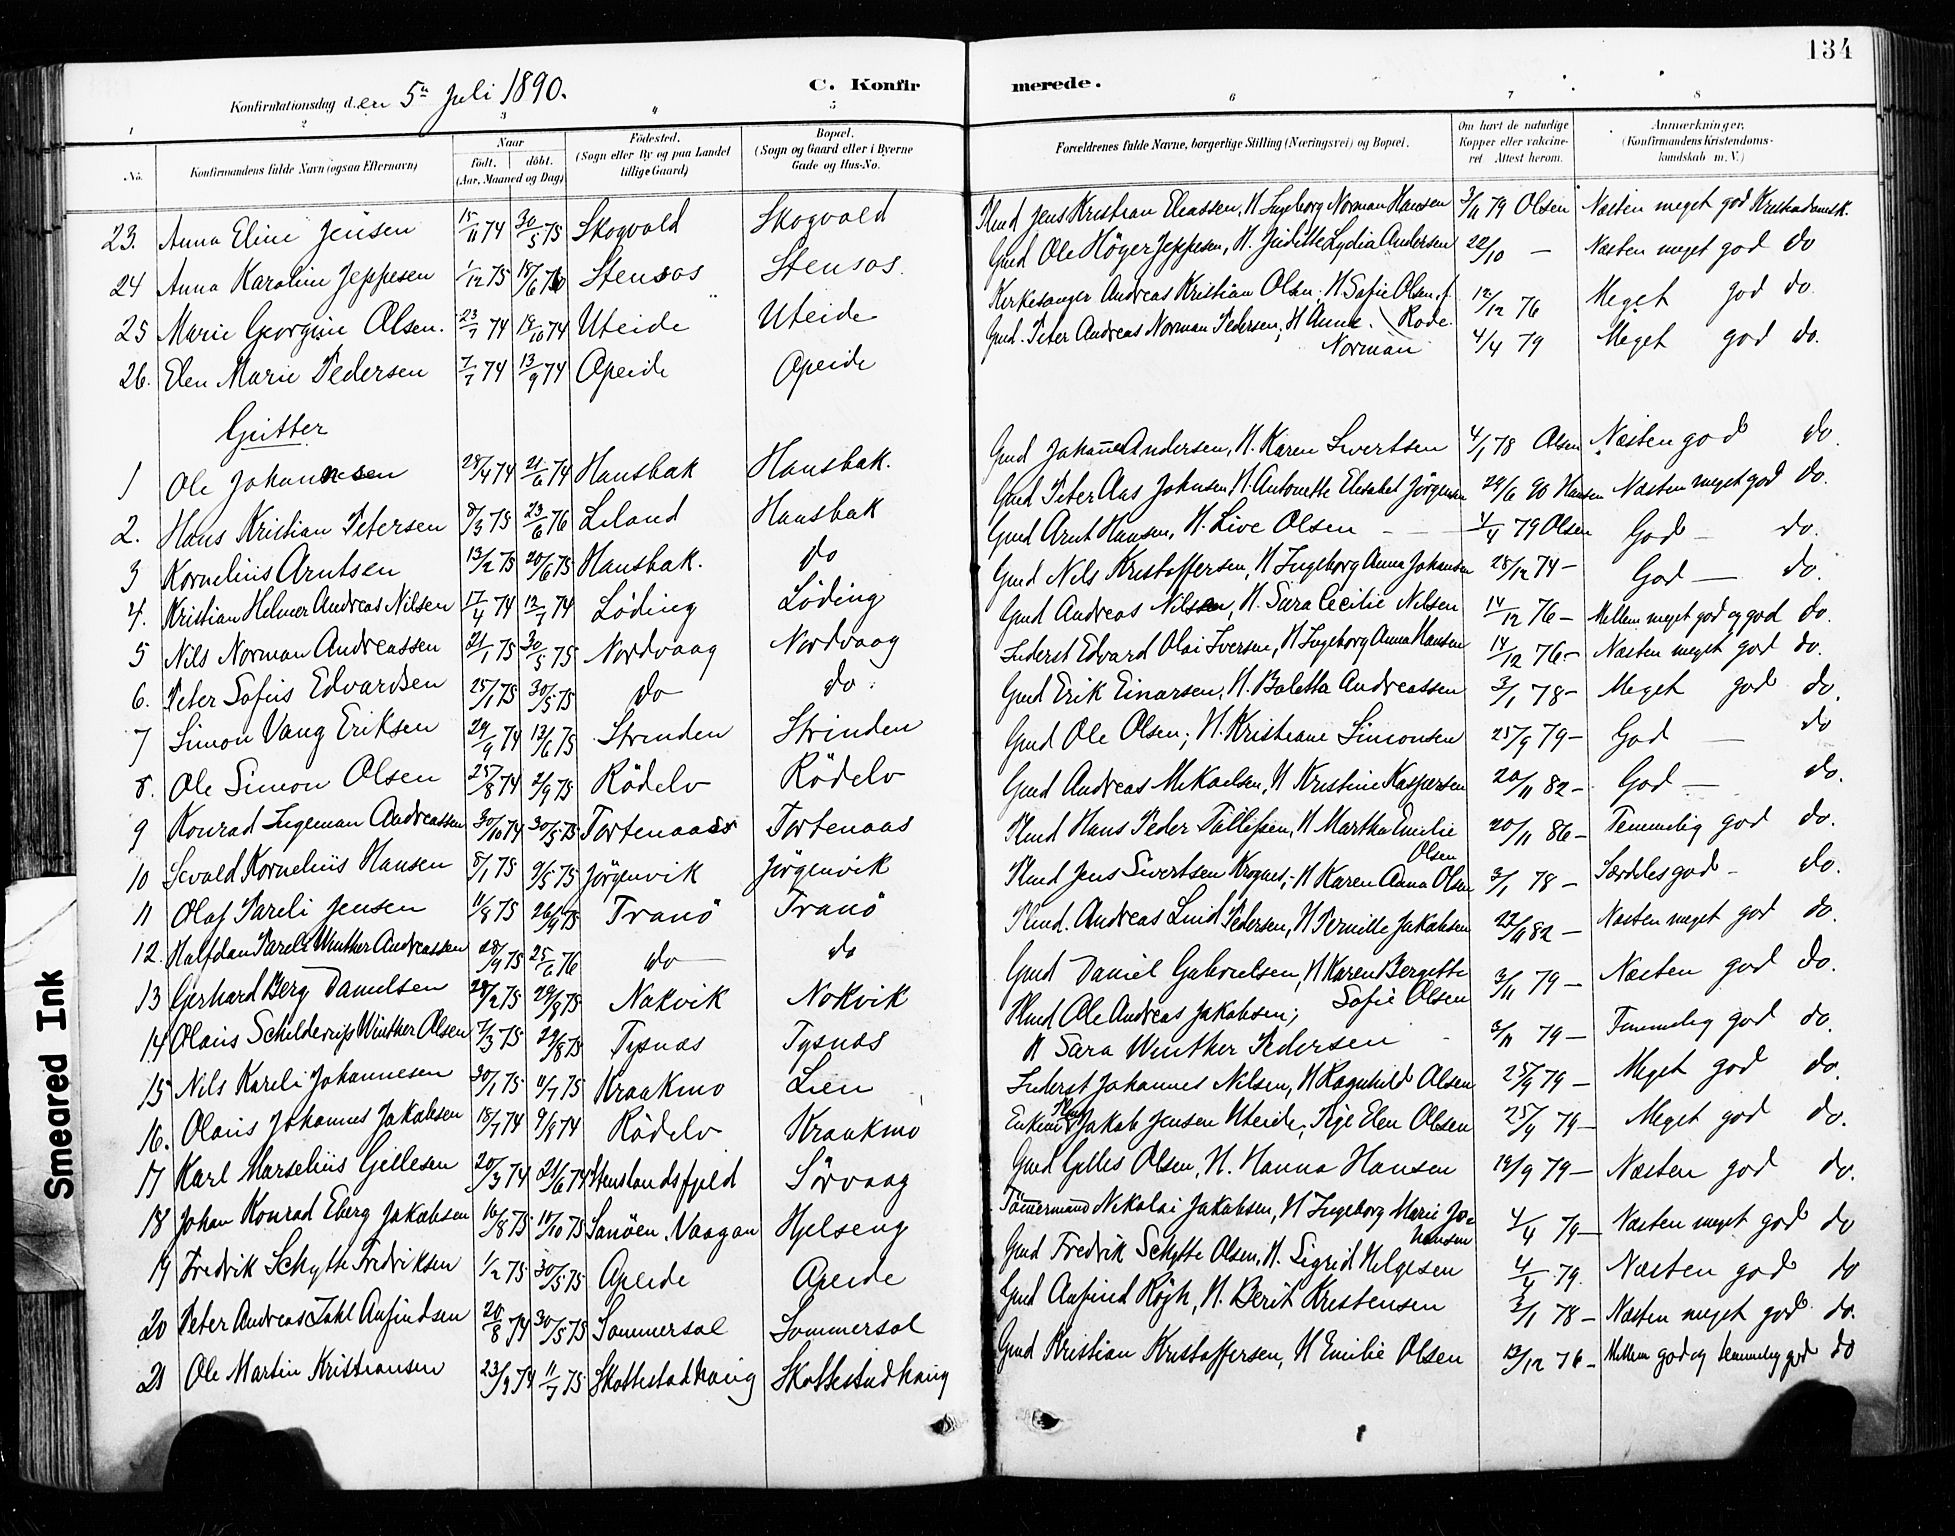 134
Konfirmationsdag den 5te Juli 1890. C. Konfirmerede.
1 2 3 4 5 6 7 8
No. Konfirmandens fulde Navn (ogsaa Efternavn) Naar født. døbt. (Aar, Maaned og Dag) Fødested. (Sogn eller By og paa Landet tillige Gaard) Bopæl. (Sogn og Gaard eller i Byerne Gade og Hus-No. Forældrenes fulde Navne, borgerlige Stilling (Næringsvei) og Bopæl. Om havt de naturlige Kopper eller vaccineret Attest herom. Anmærkninger. (Konfirmandens Kristendomskundskab m. V.)
23. Anna Eline Jensen 15/11 74 30/5 75 Skogvold Skogvold Pmd Jens Kristian Eliassen, H. Ingeborg Norman Hansen 3/11 79 Olsen Næsten meget god Kristendomsk.
24 Anna Karoline Jeppesen 1/12 75 18/6 76 Stensos Stensos. Gmd Ole Höger Jeppesen, H. Juditte Lydia Andersen 22/10 — Næsten meget god do
25 Marie Georgine Olsen. 23/7 74 18/10 74 Uteide Uteide Kirkesanger Andreas Kristian Olsen, H Sofie Olsen f. Rode. 12/12 76 Meget god do.
26. Elen Marie Pedersen 7/7 74 13/9 74 Apeide Apeide Gmd. Peter Andreas Norman Pedersen; H Anne Norman 4/4 79 Meget god do.
Gutter
1 Ole Johannesen 28/4 74 21/6 74 Hansbak Hansbak. Gmd Johan Andersen, H. Karen Sivertsen 4/1 78 Olsen Næsten god do
2. Hans Kristian Petersen 8/3 75 23/6 76 Leland Hansbak Gmd Peter Aas Johnsen, H. Antonette Elisabet Jörgensen 29/6 90 Hansen Næsten meget god do.
3 Kornelius Arntsen 13/2 75 20/6 75 Hansbak. do Gmd Arnt Hansen, H. Live Olsen 4/4 79 Olsen God — do.
4. Kristian Helmer Andreas Nilsen 17/4 74 12/7 74 Löding Löding Gmd Nils Kristoffersen, H Ingeborg Anna Johansen 28/12 74 — God — do.
5 Nils Norman Andreassen 21/1 75 30/5 75 Nordvaag Nordvaag Gmd Andreas Nilsen, H. Sara Cecilie Nilsen 14/12 76 — Mellem meget god og god do.
6. Peter Sofus Edvardsen 25/1 75 30/5 75 do do. Inderst Edvard Olai Iversen, H Ingeborg Anna Hansen 14/12 76.— Næsten meget god do.
7 Simon Vang Eriksen 29/9 74 13/6 75 Strinden Strinden Gmd Erik Einarsen, H. Boletta Andreassen 3/1 78 — Meget god do
8. Ole Simon Olsen 25/8 74 2/9 75 Rödelv Rödelv Gmd Ole Olsen; H. Kristiane Simonsen 25/9 79 — God — do
9 Konrad Ingeman Andreassen 30/10 74 30/5 75 Tortenaas Tortenaas Gmd Andreas Mikaelsen, H Kristine Kaspersen 20/11 82 — God — do.
10 Sevald Kornelius Hansen 8/1 75 9/5 75 Jörgenvik Jörgenvik Pmd Hans Peder Tollefsen, H Martha Emilie Olsen 20/11 86 — Temmelig god do.
11 Olaf Pareli Jensen 11/8 75 26/9 75 Tranö Tranö Pmd Jens Sivertsen Krognes, H Karen Anna Olsen 3/1 78 — Særdeles god — do.
12. Halfdan Pareli Winther Andreassen 28/9 75 25/6 76 do do Pmd. Andreas Lind Pedersen, H Pernille Jakobsen 22/11 82 — Næsten meget god do.
13 Gerhard Berg Danielsen 28/2 75 29/8 75 Nokvik Nokvik Gmd Daniel Gabrielsen, H Karen Bergitte Sofie Olsen 3/11 79 — Næsten god do.
14 Olaus Schilderup Winther Olsen 7/3 75 29/8 75 Tysnæs Tysnæs Pmd Ole Andreas Jakobsen; H Sara Winther Pedersen 3/11 79 — Temmelig god do.
15 Nils Kareli Johannesen 30/1 75 11/7 75 Kraakmo Lien Inderst Johannes Nilsen, H Ragnhild Olsen 25/9 79 — Meget god do.
16. Olaus Johannes Jakobsen 18/7 74 9/9 74 Rödelv Kraakmo Enkem. Jakob Jensen Uteide, Pige Elen Olsen 25/9 79 — Meget god do.
17 Karl Marselius Gellesen 20/3 74 21/6 74 Stenslandsfjeld Sörvaag Gmd Gelles Olsen, H. Hanna Hansen 19/9 79 — Næsten god do.
18 Johan Konrad Eberg Jakobsen 16/8 75 10/10 75 Sanöen, Vaagan Hjelseng Tömmermand Nikolai Jakobsen, H Ingeborg Marie Johansen 4/4 79 — Næsten meget god do
19 Fredrik Schytte Fredriksen 1/2 75 30/5 75 Apeide Apeide Gmd Fredrik Schytte Olsen, H. Sigrid Helgesen 4/4 79. Næsten god do
20 Peter Andreas Dahl Anfindsen 20/8 74 30/5 75 Sommersel Sommersel Gmd Anfind Rögh, H. Berit Kristensen 3/1 78 — Næsten meget god do.
21 Ole Martin Kristiansen 23/9 74 11/7 75 Skottestadhaug Skottestadhaug Gmd Kristian Kristoffersen, H Emilie Olsen 13/12 76 — Mellem god og temmelig god do
Smeared Ink